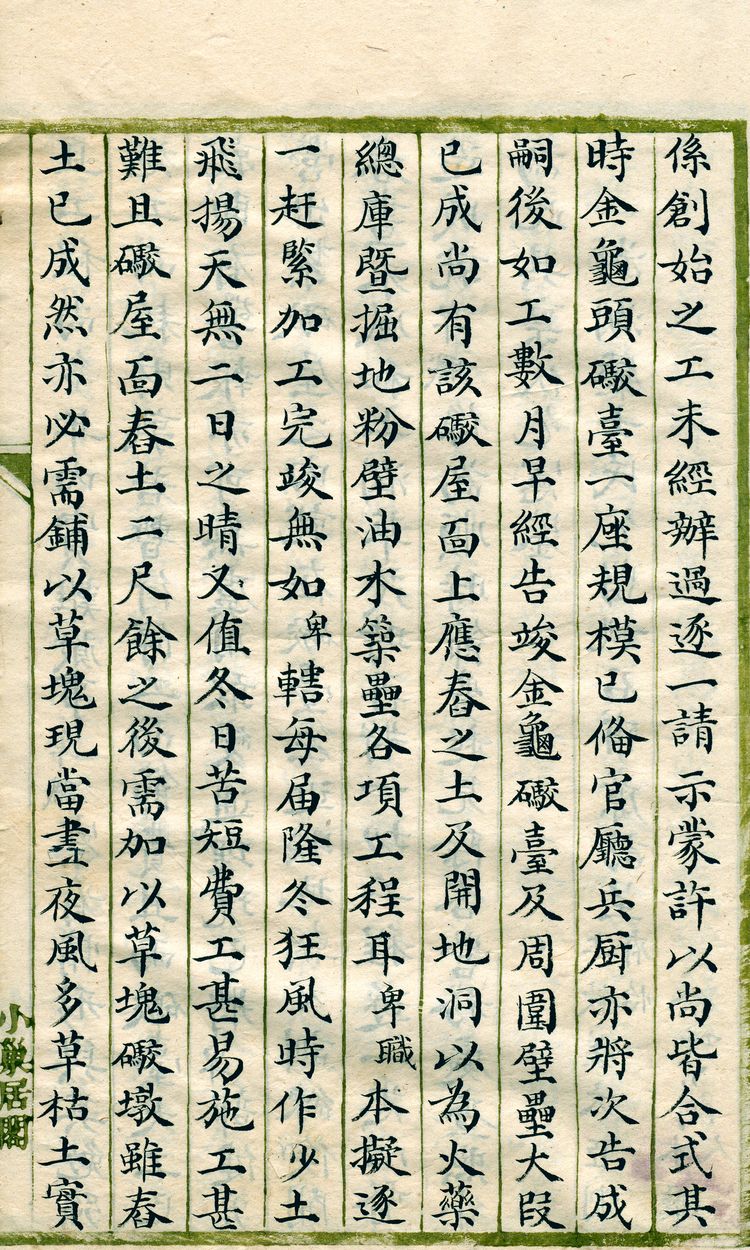 係創始之工未經辦過逐一請示蒙許以尚皆合式其
時金龜頭礮臺一座規模已俻官廳兵厨亦將次告成
嗣後如工數月早經告竣金龜礮臺及周圍壁壘大段
已成尚有該礮屋面上應舂之土及開地洞以為火藥
總庫暨掘地粉壁油水築壘各項工程耳卑職本擬逐
一赶緊加工完竣無如卑轄每届隆冬狂風時作少土
飛揚天無二日之晴又值冬日苦短費工甚易施工甚
難且礮屋面舂土二尺餘之後需加以草塊礮墩雖舂
土已成然亦必需鋪以草塊現當晝夜風多草枯土實
小巢居閣